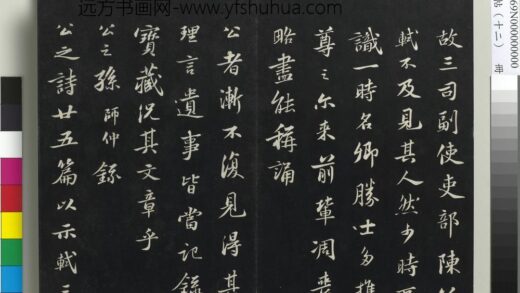 远方书画网-www.yfshuhua.com
69N0000000000
帖（十二）
故三司副使吏部陳
軾不及見其人然少時
識一時名卿勝士多推
尊之尔来前輩凋喪
略盡能稱誦
公者漸不復見得其
理言遺事皆當記錄
寳藏况其文章乎
公之孫師仲錄
公之詩廿五篇以示軾三